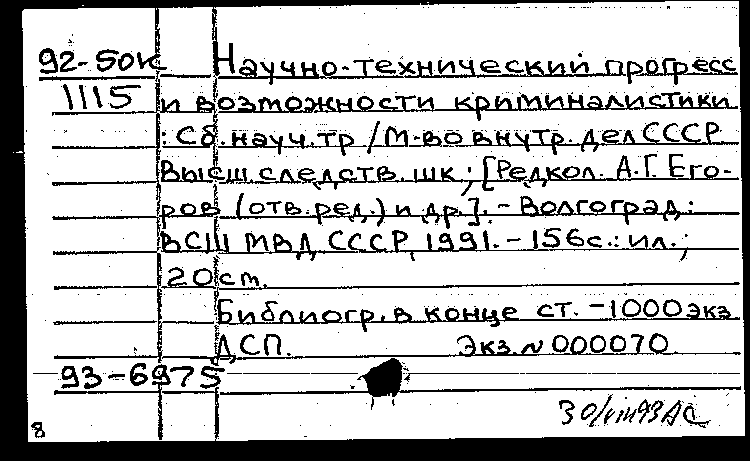 92-50к Научно-технический прогресс
1115 и возможности криминалистики
: Сб. науч. тр / М-во внутр. дел СССР
Высш. следств. шк.; [Редкол. А.Г. Его-
ров (отв. ред.) и др.]. - Волгоград:
ВСШ МВД СССР, 1991. - 156с.: ил.;
20 см.
Библиогр. в конце ст. - 1000 экз
ДСП. Экз. № 000070
93-6975
30/VIII 93 АС
8